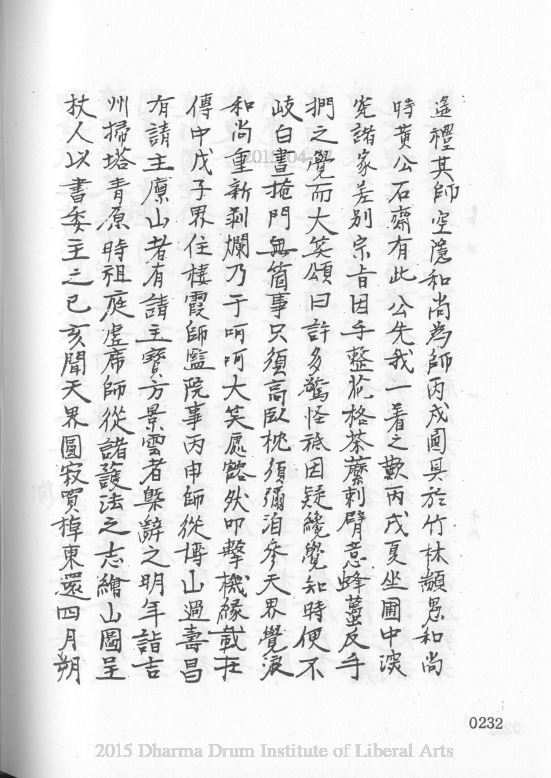 遙禮其師空隱和尚為師丙戌圓具於竹林顓愚和尚
時黃公石齋有此公先我一着之歎丙戌夏坐圃中深
究諸家差別宗旨因手整花格荼蘼刺臂意蜂蠆反手
捫之覺而大笑頌曰許多驚怪祇因疑纔覺知時便不
岐白晝掩門無箇事只須高臥枕須彌洎參天界覺浪
和尚重新剝爛乃于呵呵大笑處豁然叩擊機緣載在
傳中戊子界住棲霞師監院事丙申師從博山過壽昌
有請主廩山者有請主寶方景雲者槩辭之明年詣吉
州掃塔青原時祖庭虛席師從諸護法之志繪山圖呈
杖人以書委主之己亥聞天界圓寂買棹東還四月朔
0232
2015 Dharma Drum Institute of Liberal Arts